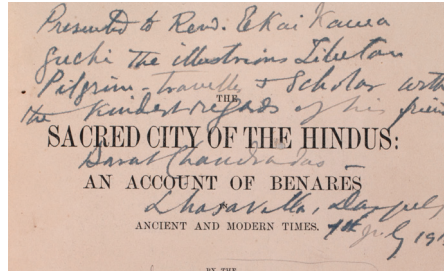 Presented to Revd. Ekai Kawa
guchi the illustrious Tibetan
Pilgrim-traveller & Scholar with
the kindest regards of his friend
THE
SACRED CITY OF THE HINDUS:
Sarat Chandra Das
AN ACCOUNT OF BENARES
IN
Lhasa Villa, Darjeel
ANCIENT AND MODERN TIMES.
July 191
BY THE